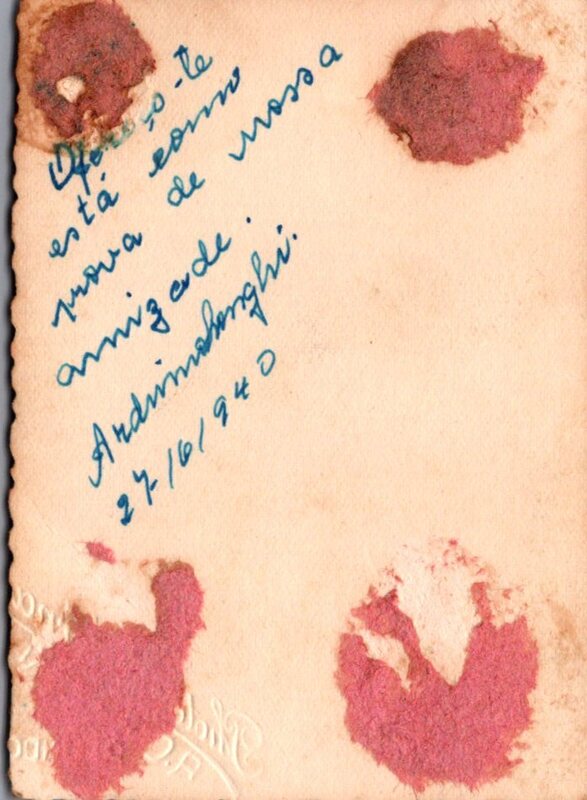 Ofereço-te
está como
prova de nossa
amizade.
27/6/940